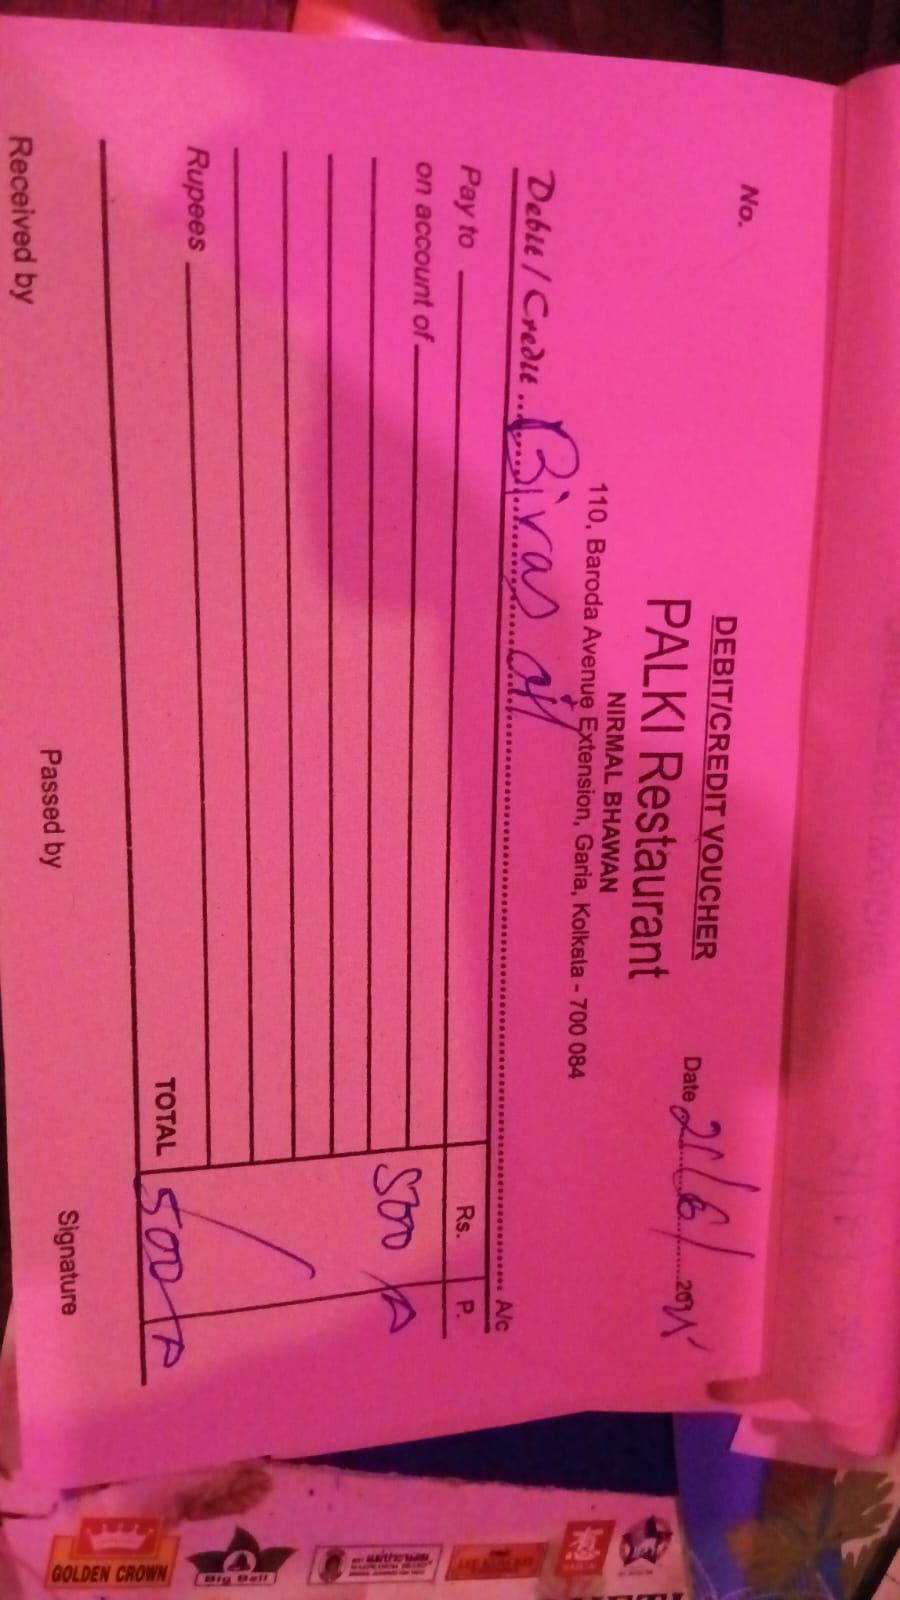 No.
DEBIT/CREDIT VOUCHER
PALKI Restaurant
NIRMAL BHAWAN
110, Baroda Avenue Extension, Garia, Kolkata - 700 084
Date 21/6/ 20
Debit / Credit Bivas A/c
Pay to Rs. P.
on account of
500
Rupees
TOTAL 500
Received by Passed by Signature
GOLDEN CROWN
Big Bell